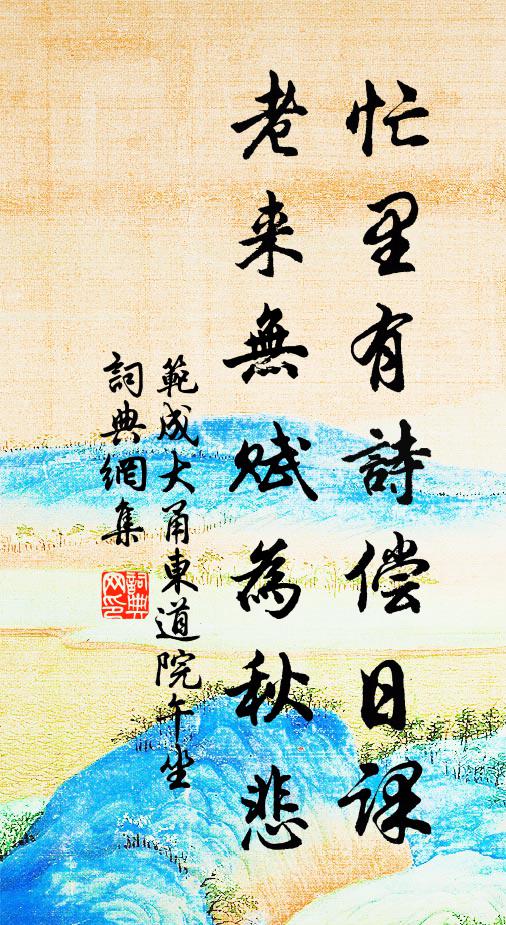 忙里有詩偿日课
老来無賦為秋悲
範成大甬東道院午坐
詞典網集
詞典网印